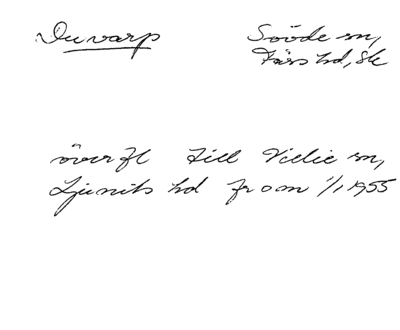 Duvarp
Sövde sn,
Färs hd, Sk
överfl till Villie sn,
Ljunits hd from 1/1 1955